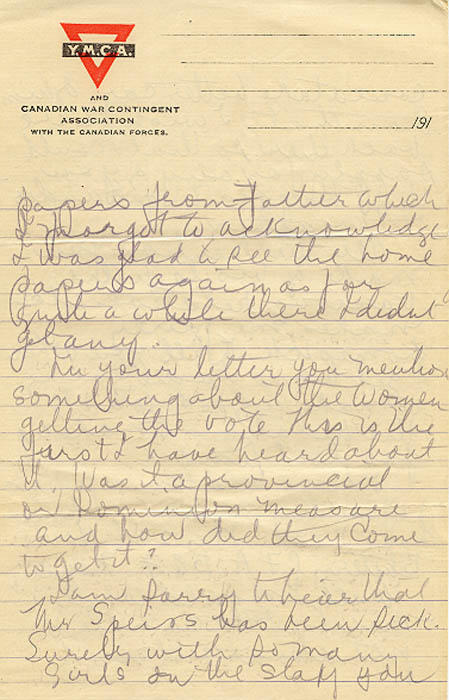 Y.M.C.A.
AND
CANADIAN WAR CONTINGENT
ASSOCIATION
WITH THE CANADIAN FORCES.
191
papers from Father which
I forgot to acknowledge
I was glad to see the home
papers again as for
quite a while there I didnt
get any.
In your letter you mention
something about the Women
getting the vote this is the
first I have heard about
it. Was it a provincial
or Dominion measure
and how did they come
to get it?
I am sorry to hear that
Mr Speirs has been sick.
Surely with so many
girls on the staff you